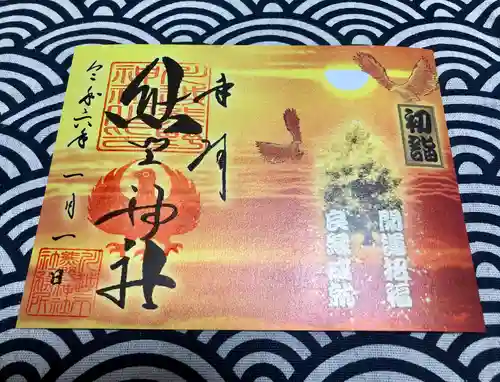 初詣
開運招福
良縁成就
奉拝
熊野神社
令和六年一月一日